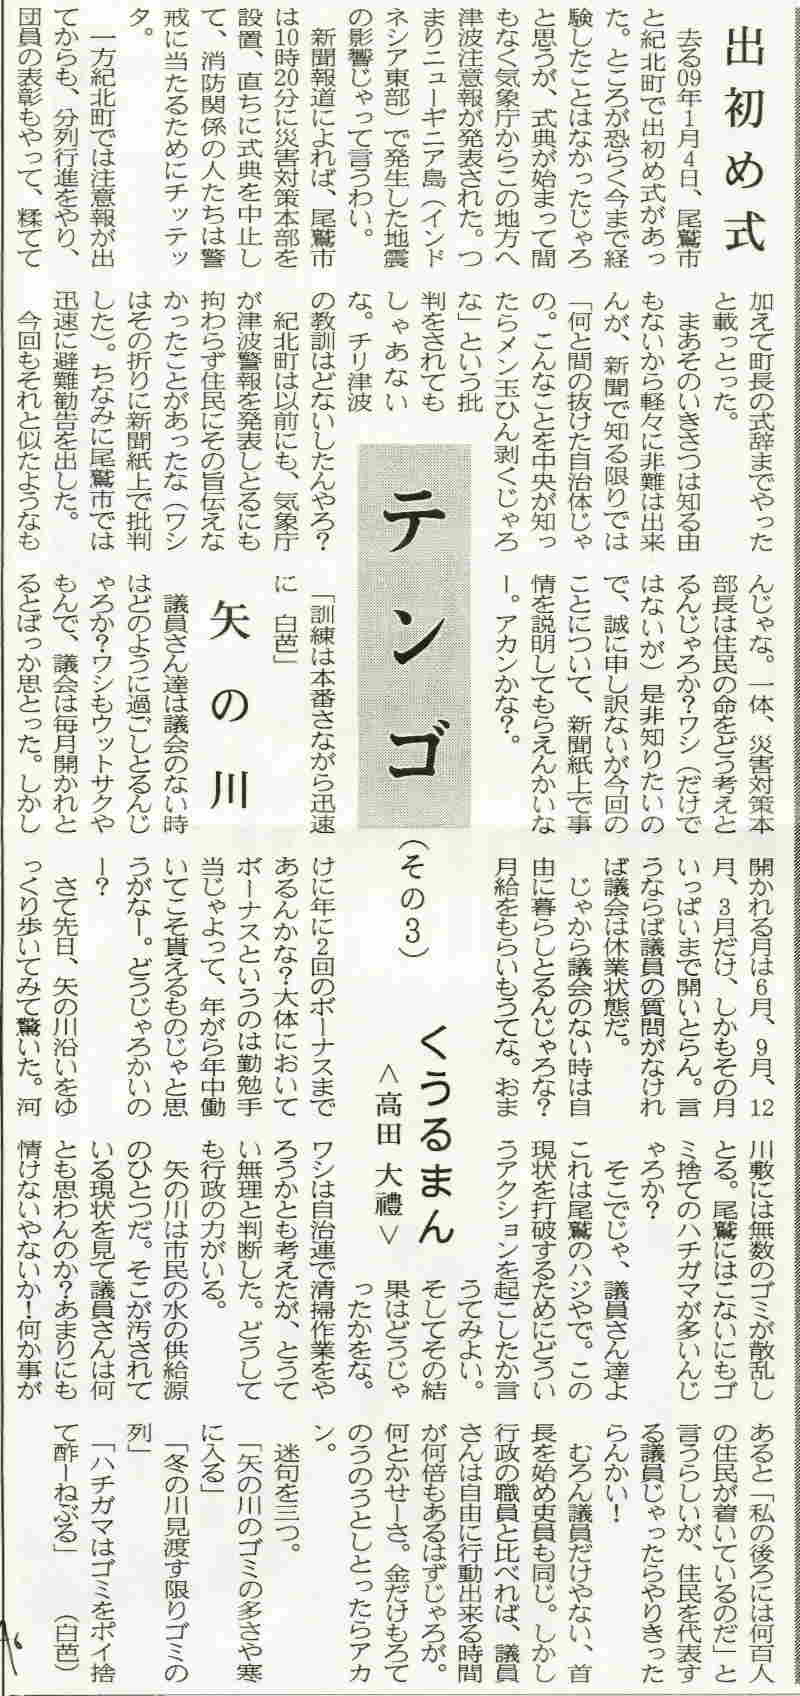 出初め式
去る09年1月4日、尾鷲市
と紀北町で出初め式があっ
た。ところが恐らく今まで経
験したことはなかったじゃろ
と思うが、式典が始まって間
もなく気象庁からこの地方へ
津波注意報が発表された。つ
まりニューギニア島（インド
ネシア東部）で発生した地震
の影響じゃって言うわい。
新聞報道によれば、尾鷲市
は10時20分に災害対策本部を
設置、直ちに式典を中止し
て、消防関係の人たちは警
戒に当たるためにチッテッ
タ。
一方紀北町では注意報が出
てからも、分列行進をやり、
団員の表彰もやって、糅てて
加えて町長の式辞までやった
と載っとった。
まあそのいきさつは知る由
もないから軽々に非難は出来
んが、新聞で知る限りでは
「何と間の抜けた自治体じゃ
の。こんなことを中央が知っ
たらメン玉ひん剥くじゃろ
な」という批
判をされても
しゃあない
な。チリ津波
の教訓はどないしたんやろ？
紀北町は以前にも、気象庁
が津波警報を発表しとるにも
拘わらず住民にその旨伝えな
かったことがあったな（ワシ
はその折りに新聞紙上で批判
した）。ちなみに尾鷲市では
迅速に避難勧告を出した。
今回もそれと似たようなも
んじゃな。一体、災害対策本
部長は住民の命をどう考えと
るんじゃろか？ワシ（だけで
はないが）是非知りたいの
で、誠に申し訳ないが今回の
ことについて、新聞紙上で事
情を説明してもらえんかいな
ー。アカンかな？。
テンゴ
（その3）
くうるまん
＜高田 大禮＞
「訓練は本番さながら迅速
に　白芭」
矢の川
議員さん達は議会のない時
はどのように過ごしとるんじ
ゃろか？ワシもウットサクや
もんで、議会は毎月開かれと
るとばっか思とった。しかし
開かれる月は6月、9月、12
月、3月だけ、しかもその月
いっぱいまで開いとらん。言
うならば議員の質問がなけれ
ば議会は休業状態だ。
じゃから議会のない時は自
由に暮らしとるんじゃろな？
月給をもらいもうてな。おま
けに年に2回のボーナスまで
あるんかな？大体において
ボーナスというのは勤勉手
当じゃよって、年がら年中働
いてこそ貰えるものじゃと思
うがなー。どうじゃろかいの
ー？
さて先日、矢の川沿いをゆ
っくり歩いてみて驚いた。河
川敷には無数のゴミが散乱し
とる。尾鷲にはこないにもゴ
ミ捨てのハチガマが多いんじ
ゃろか？
そこでじゃ、議員さん達よ
これは尾鷲のハジやで。この
現状を打破するためにどうい
うアクションを起こしたか言
うてみよい。
そしてその結
果はどうじゃ
ったかをな。
ワシは自治連で清掃作業をや
ろうかとも考えたが、とうて
い無理と判断した。どうして
も行政の力がいる。
矢の川は市民の水の供給源
のひとつだ。そこが汚されて
いる現状を見て議員さんは何
とも思わんのか？あまりにも
情けないやないか！何か事が
あると「私の後ろには何百人
の住民が着いているのだ」と
言うらしいが、住民を代表す
る議員じゃったらやりきった
らんかい！
むろん議員だけやない、首
長を始め吏員も同じ。しかし
行政の職員と比べれば、議員
さんは自由に行動出来る時間
が何倍もあるはずじゃろが。
何とかせーさ。金だけもろて
のうのうとしとったらアカ
ン。
迷句を三つ。
「矢の川のゴミの多さや寒
に入る」
「冬の川見渡す限りゴミの
列」
「ハチガマはゴミをポイ捨
て酢ーねぶる」　（白芭）